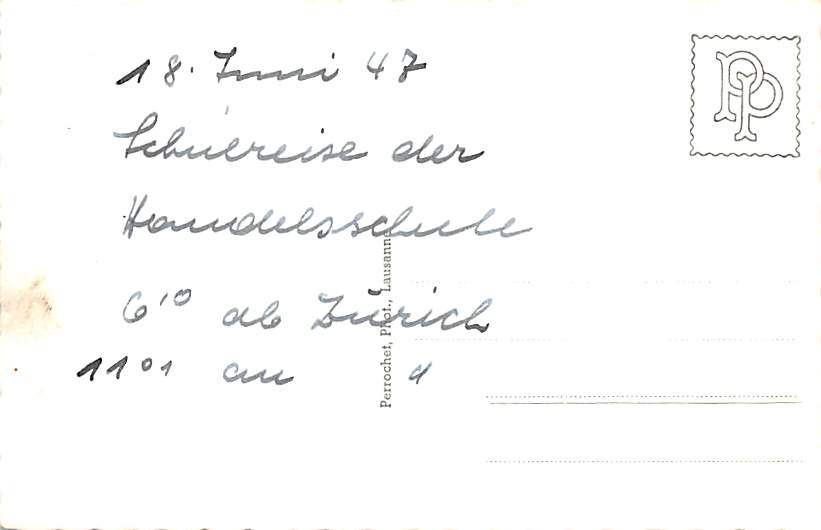 18. Juni 47
Schulreise der
Handelsschule
6¹⁰ ab Zürich
11⁰¹ an "
Perrochet, Phot., Lausanne
PP